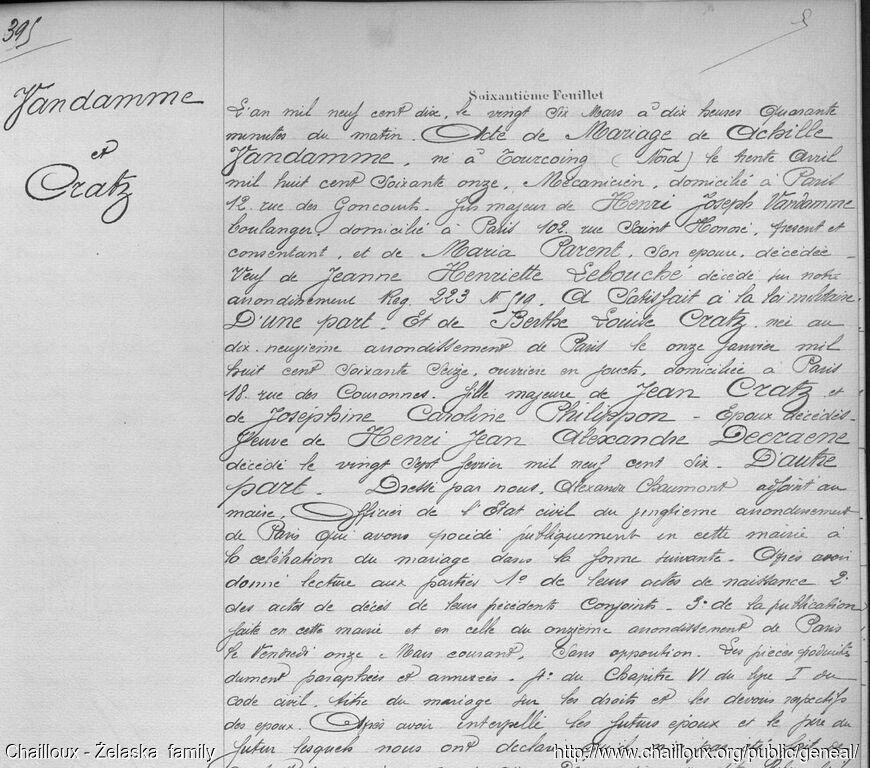 395
Vandamme
et
Cratz
Soixantième Feuillet
L'an mil neuf cent dix, le vingt six Mars à dix heures quarante
minutes du matin. Acte de Mariage de Achille
Vandamme, né à Tourcoing (Nord) le trente Avril
mil huit cent soixante onze, Mécanicien, domicilié à Paris
12, rue des Goncourt. fils majeur de Henri Joseph Vandamme
boulanger, domicilié à Paris 102, rue Saint Honoré, présent et
consentant, et de Maria Parent, son épouse, décédée -
Veuf de Jeanne Henriette Lebouché décédé sur notre
arrondissement Reg. 223 N° 19. A satisfait à la loi militaire
D'une part. Et de Berthe Louise Cratz, née au
dix-neuvième arrondissement de Paris le onze janvier mil
huit cent soixante seize, ouvrière en domiciliée à Paris
18, rue des Couronnes. fille majeure de Jean Cratz et
de Joséphine Caroline Philippon - Epoux décédés -
Veuve de Henri Jean Alexandre Decraene
décédé le vingt sept février mil neuf cent six. D'autre
part. Dressé par nous, Alexandre Chaumont adjoint au
maire, Officier de l'Etat civil du vingtième arrondissement
de Paris qui avons procédé publiquement en cette mairie à
la célébration du mariage dans la forme suivante - Après avoir
donné lecture aux parties 1° de leurs actes de naissance 2°
des actes de décès de leurs précédents conjoints - 3° de la publication
faite en cette mairie et en celle du onzième arrondissement de Paris
le Vendredi onze Mars courant, sans opposition. Les pièces produites
dument paraphées et annexées. 4° du Chapitre VI du I du
code civil, titre du mariage sur les droits et les devoirs respectifs
des époux. Après avoir interpellé les futurs époux et le père du
futur lesquels nous ont déclaré
Chailloux - Żelaska family
http://www.chailloux.org/public/geneal/